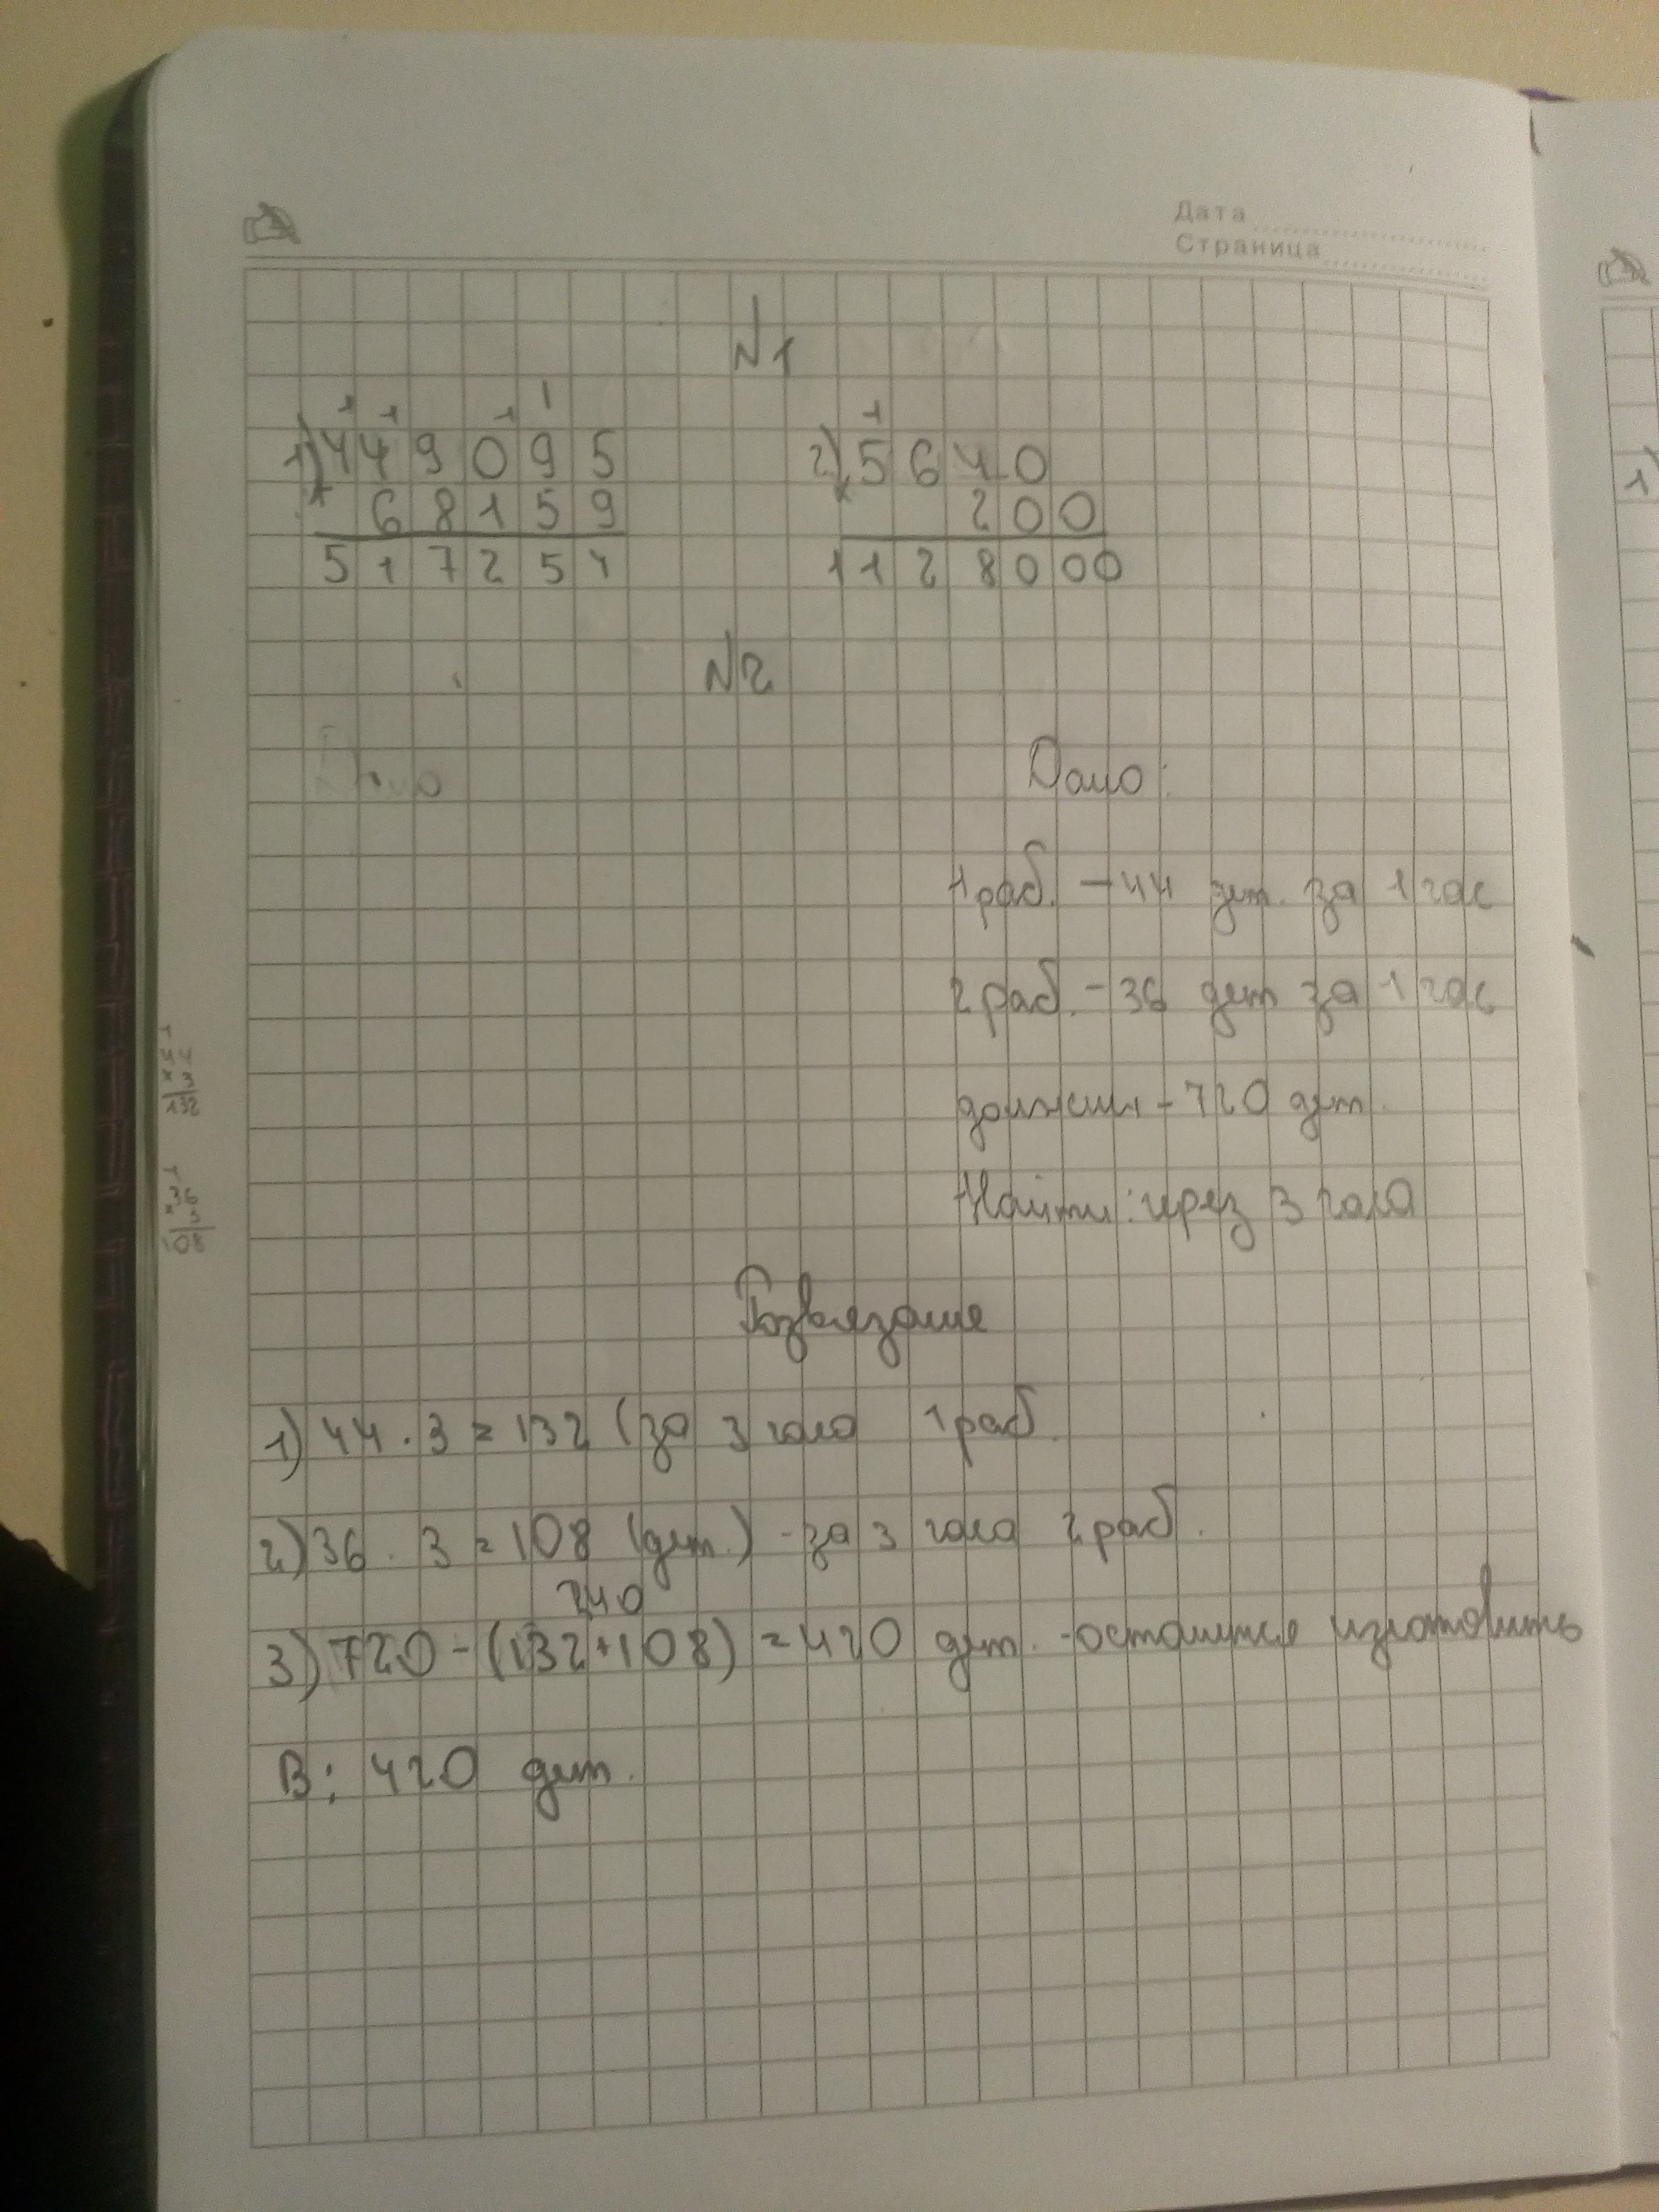 Дата
Страница
N1
1) 449095
+ 68159
517254
2) 5640
× 200
1128000
N2
Дано:
1 раб. - 44 дет. за 1 час
2 раб. - 36 дет за 1 час
должны - 720 дет.
Найти: через 3 часа
44
× 3
132
36
× 3
108
Розвязание
1) 44 . 3 = 132 (за 3 часа 1 раб.
2) 36 . 3 = 108 (дет.) - за 3 часа 2 раб.
240
3) 720 - (132 + 108) = 420 дет. - останутся изготовить
В: 420 дет.
1)